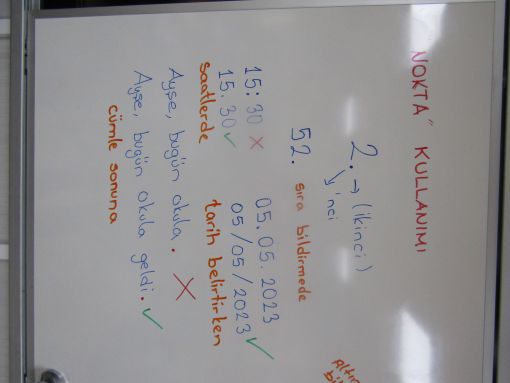 NOKTA" KULLANIMI
2. → (ikinci)
↘ 'nci
52. sıra bildirmede
15:30 ✗
15.30 ✓
saatlerde
05.05.2023
05/05/2023 ✓
tarih belirtirken
Ayşe, bugün okula. ✗
Ayşe, bugün okula geldi. ✓
cümle sonuna